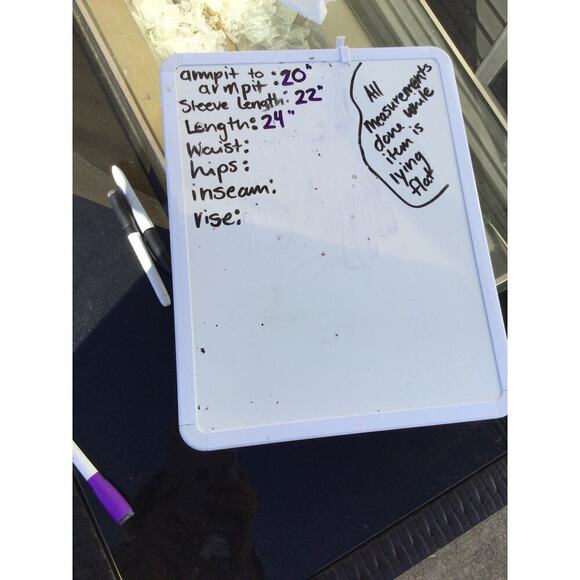 armpit to
armpit: 20"
Sleeve Length: 22"
Length: 24"
Waist:
hips:
inseam:
rise:
All
measurements
done while
item is
lying
flat